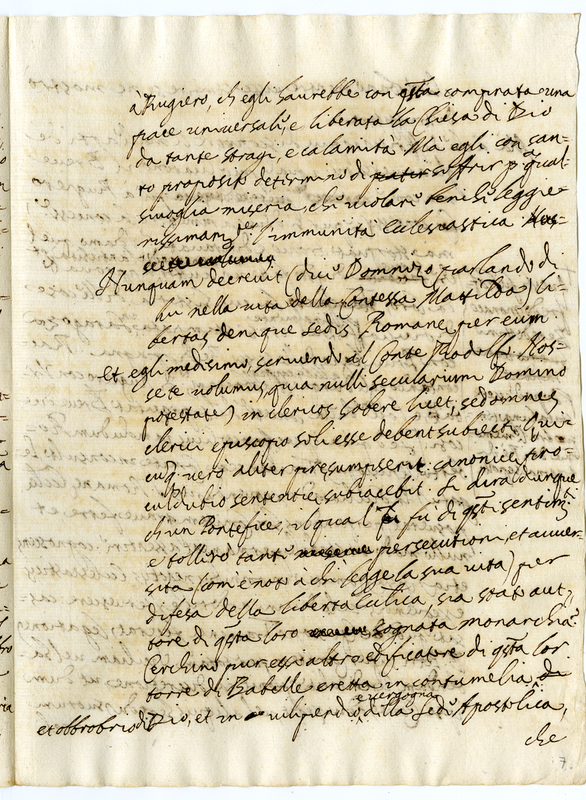 à Rugiero, ch'egli haurebbe con qsta comprata una
pace universale, e liberata la Chiesa di Dio
da tante stragi, e calamità. Mà egli con san-
to proposito determinò di patir soffrir p qual-
sivoglia miseria, che violare benche leggie-
rissimam.te l'immunità Eclesiastica. Nos-
Nunquam decrevit (dice Domnizo parlando di
lui nella vita della Contessa Matilda) li-
bertas denique sedis Romane per eum.
Et egli medesimo, scrivendo al Conte Rodolfo Nos-
se te volumus, quia nulli secularium Domino
potestate) in clericos habere licet, sed omnes
clerici episcopio soli esse debent subiecti. Qui-
cuq. vero aliter presumpserit canonice pro-
culdubio sententie subiacebit. Si dirà dunque
ch'un Pontefice, il qual fù di qsti sentim.ti
e sollirò tanti persecutioni, et auver-
sità (com'è noto à chi legge la sua vita) per
difesa della libertà Eccl.ica, sia stato aut-
tore di qsta loro sognata monarchia.
Cerchino pur essi altro edificatore di qsta lor
torre di Babelle eretta in contumelia,
et obbrobrio di Dio, et in vilipendio, e vergogna della Sede Apostolica,
che
7